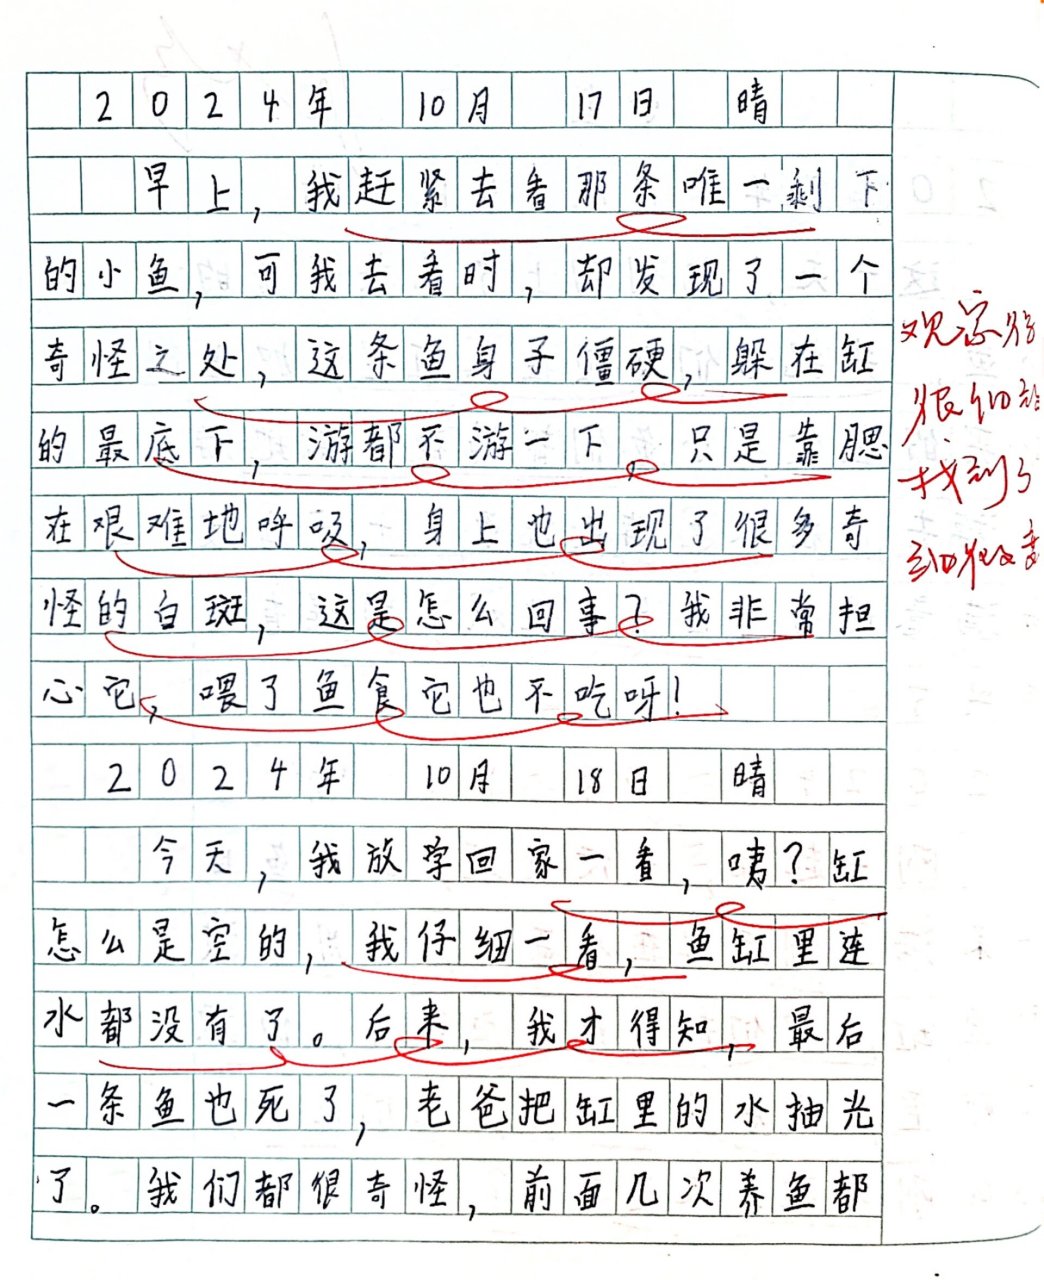 2024年 10月 17日 晴
早上，我赶紧去看那条唯一剩下
的小鱼，可我去看时，却发现了一个
奇怪之处，这条鱼身子僵硬，躲在缸
的最底下，游都不游一下，只是靠腮
在艰难地呼吸，身上也出现了很多奇
怪的白斑，这是怎么回事？我非常担
心它，喂了鱼食它也不吃呀！
2024年 10月 18日 晴
今天，我放学回家一看，咦？缸
怎么是空的，我仔细一看，鱼缸里连
水都没有了。后来，我才得知，最后
一条鱼也死了，老爸把缸里的水抽光
了。我们都很奇怪，前面几次养鱼都
观察得
很细
找到了